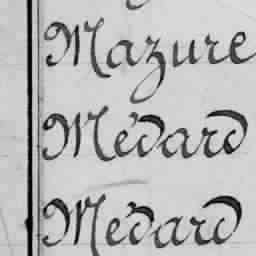 Mazure
Médard
Médard